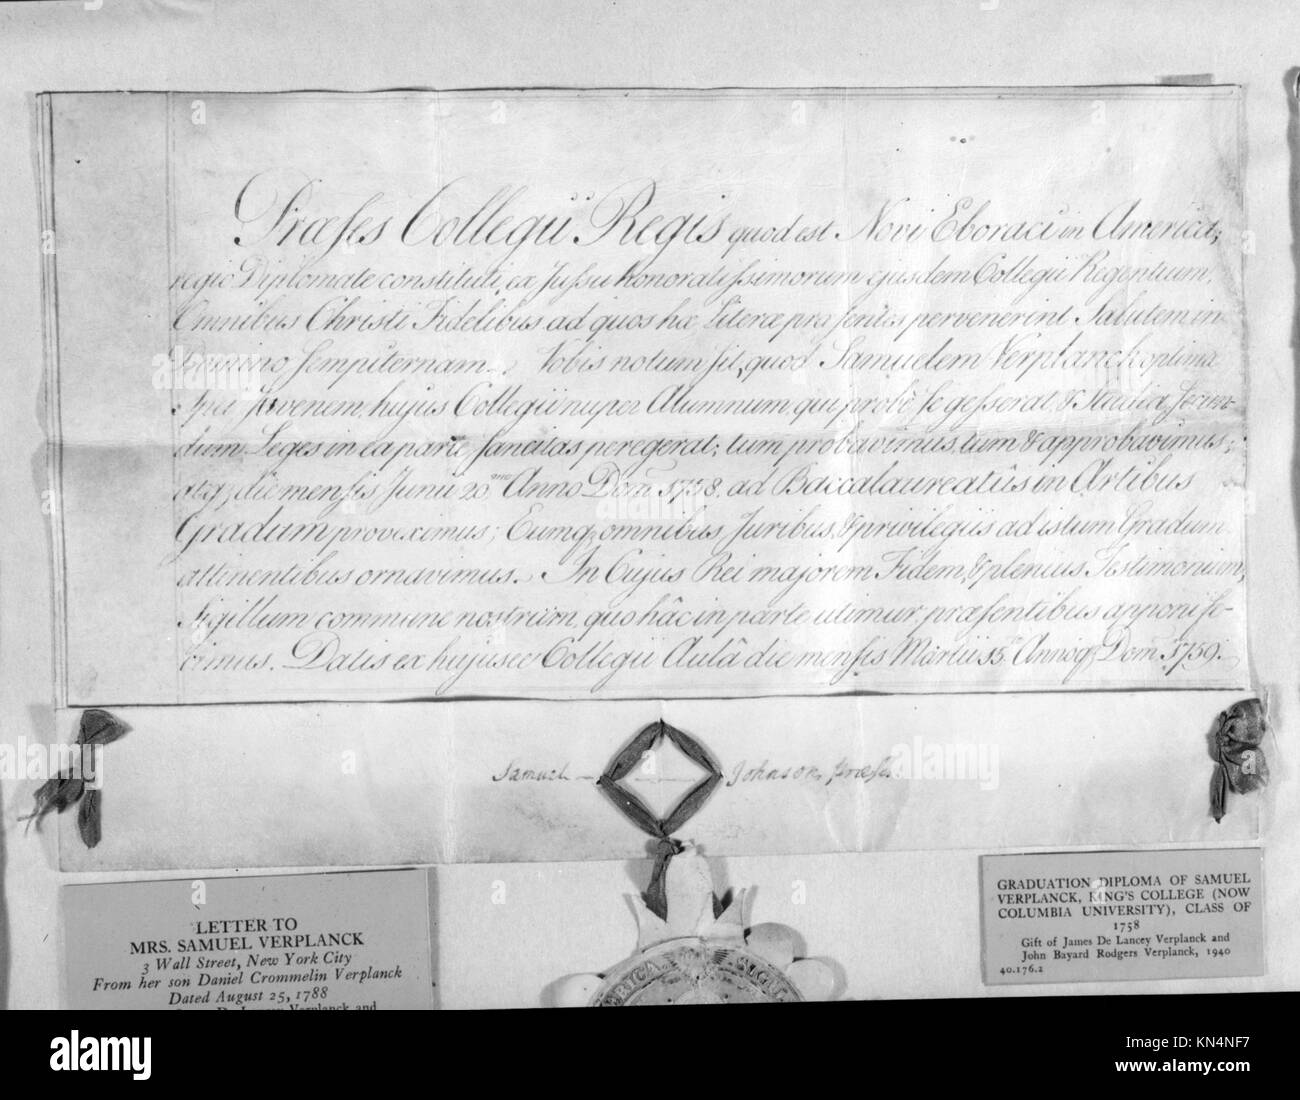 Præses Collegii Regis quod est Novi Eboraci in America;
regio Diplomate constituti, ex Jussu honoratissimorum ejusdem Collegii Regentium,
Omnibus Christi Fidelibus ad quos hæ Literæ præsentes pervenerint Salutem in
Domino sempiternam. Vobis notum sit, quod Samuelem Verplanck optimæ
Spei Juvenem, hujus Collegii nuper Alumnum, qui probè se gesserat, & Studia, Secun-
dum Leges in ea parte sancitas peregerat; tum probavimus, tum & approbavimus;
atq; die mensis Junii 20.mo Anno Dom. 1758. ad Baccalaureatûs in Artibus
Gradum proveximus; Eumq; omnibus Juribus, & privilegiis ad istum Gradum
attinentibus ornavimus. In Cujus Rei majorem Fidem, & plenius Testimonium,
Sigillum commune nostrum, quo hâc in parte utimur, præsentibus apponi fe-
cimus. Datis ex hujusce Collegii Aulâ die mensis Martii 15 Annoq; Dom. 1759.
Samuel Johnson, Præses.
LETTER TO
MRS. SAMUEL VERPLANCK
3 Wall Street, New York City
From her son Daniel Crommelin Verplanck
Dated August 25, 1788
De Lancey Verplanck and
GRADUATION DIPLOMA OF SAMUEL
VERPLANCK, KING'S COLLEGE (NOW
COLUMBIA UNIVERSITY), CLASS OF
1758
Gift of James De Lancey Verplanck and
John Bayard Rodgers Verplanck, 1940
40.176.2
alamy
Image ID: KN4NF7
www.alamy.com